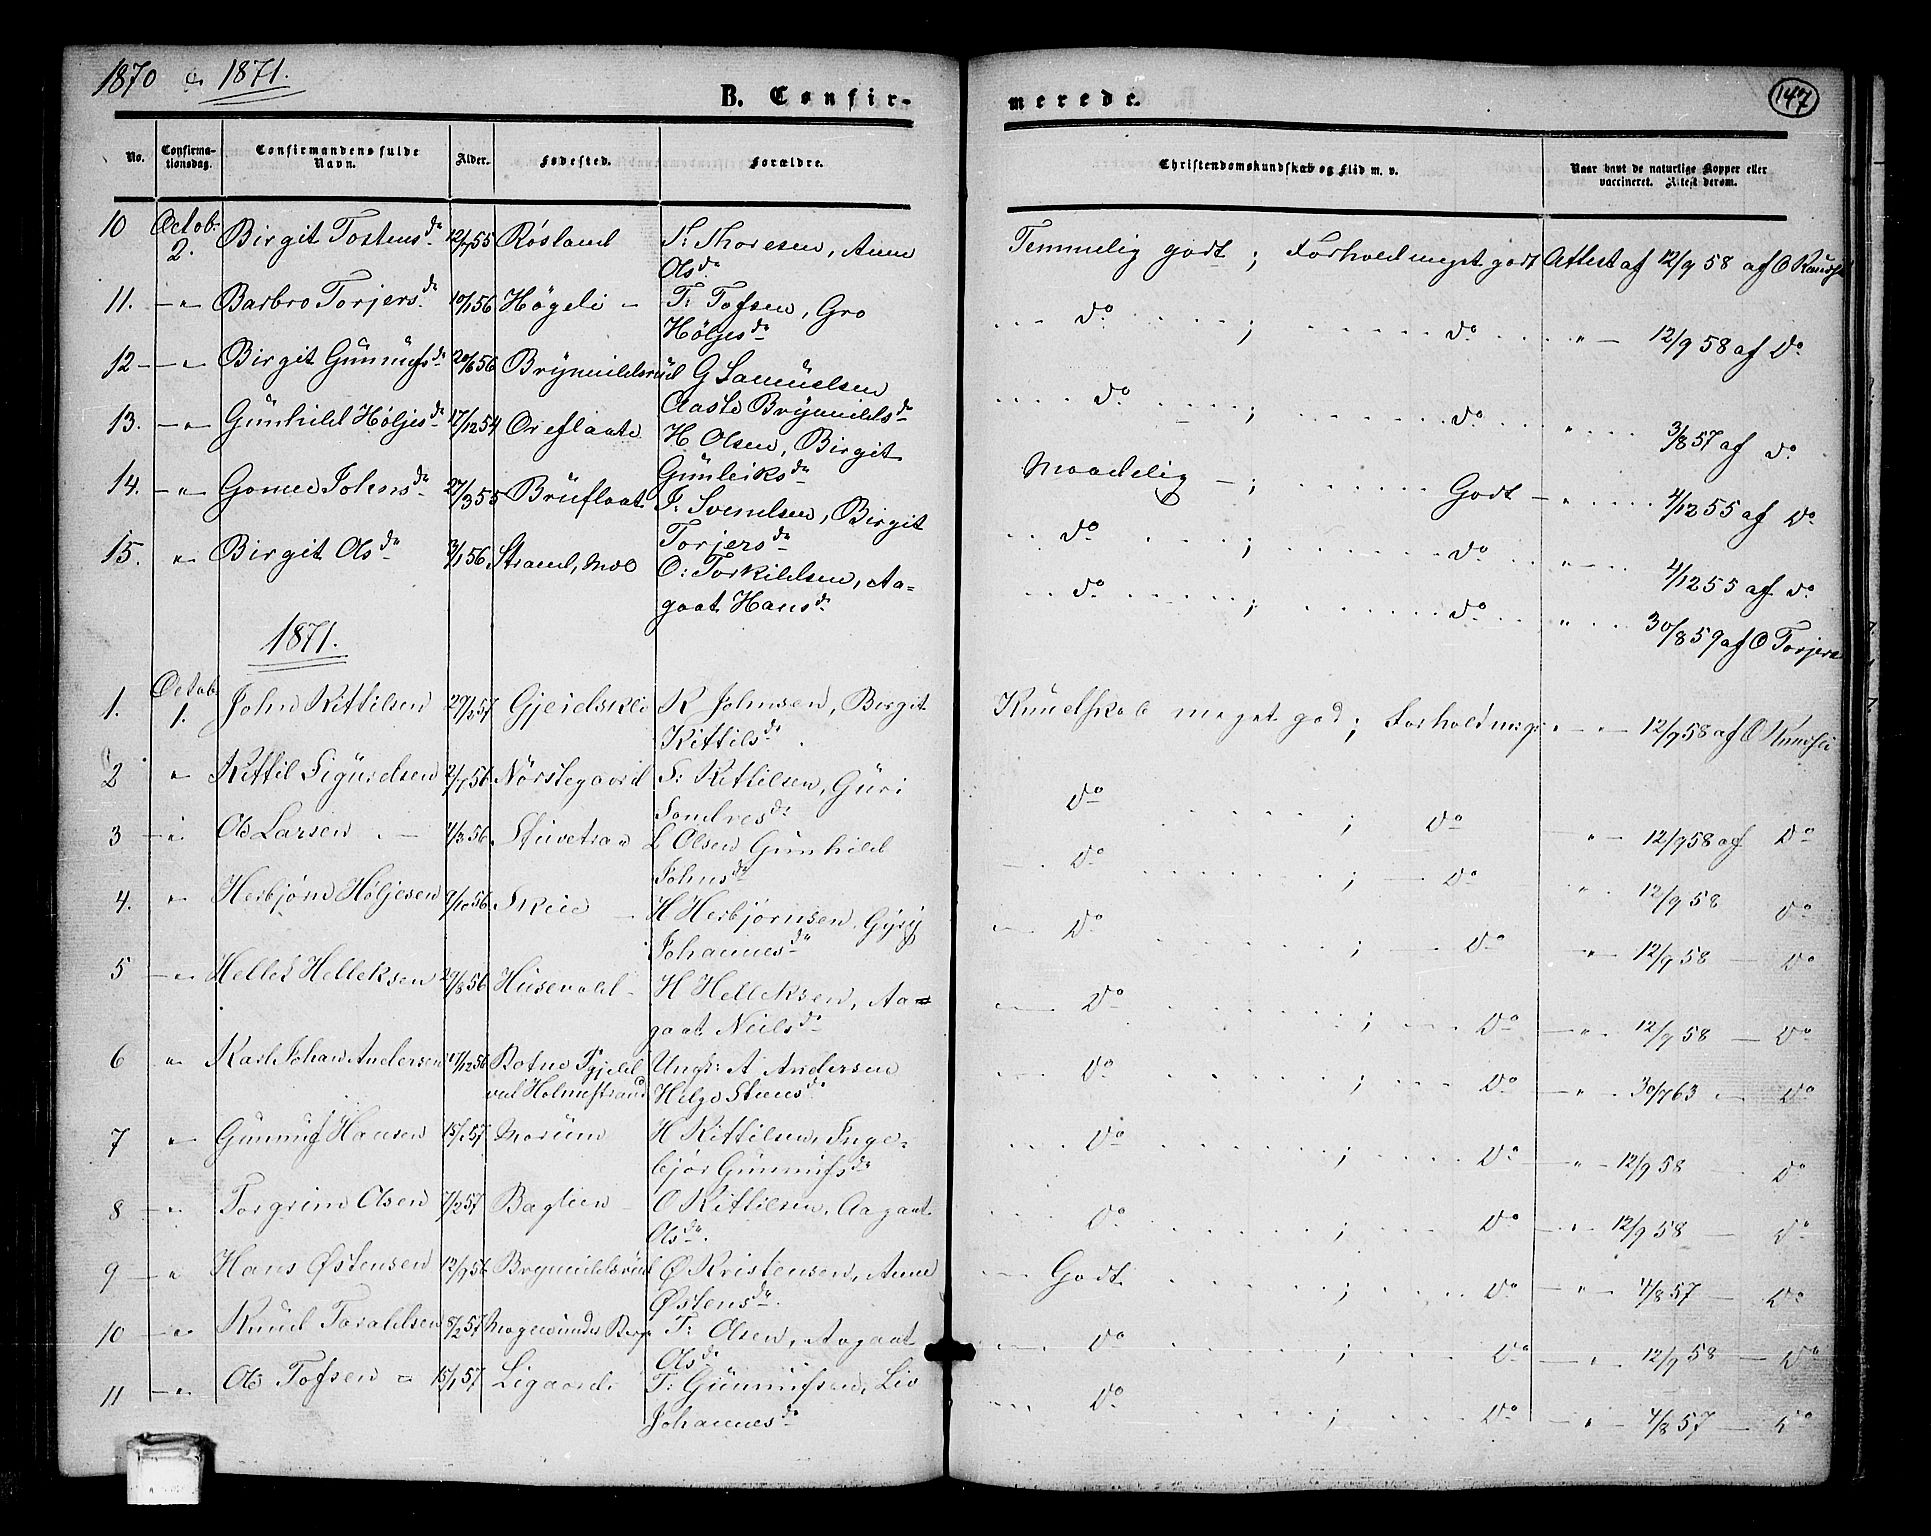 1870 & 1871.
B. Confir-
merede.
147
No.
Confirma-
tionsdag.
Confirmandens fulde
Navn.
Alder.
Fødested.
Forældre.
Christendomskundskab og Flid m. v.
Naar havt de naturlige Kopper eller
vaccineret. Attest derom.
10 Octob. 2. Birgit Tostensdr 12/7 55 Røsland S: Thoresen, Anne Temmelig godt; Forhold meget godt Attest af 12/9 58 af O Knudse
Olsdr
11. — " Barbro Torjersdr 10/1 56 Høgeli — T: Tofsen, Gro Do ; Do " — 12/9 58 af Do
Høljesdr
12 — " Birgit Gunnufsdr 20/6 56 Brynuildsrud G Samuelsen Do ; Do " 3/8 57 af Do
Aaste Brynildsdr
13. — " Gunhild Høljesdr 17/12 54 Oreflaate H Olsen, Birgit Maadelig — ; Godt — " 4/12 55 af Do
Gunleiksdr
14. — " Gonne Johnsdr 27/3 55 Bruflaat J: Svendsen, Birgit Do ; Do " 4/12 55 af Do
Torjersdr
15. " Birgit Olsdr 3/1 56 Strand, Moe O: Torkildsen, Aa- Do ; Do " 30/8 59 af O Torjers
gaat Hansdr
1871.
1. Octob 1. John Kittilsen 29/3 57 Gjeidskli K Johnsen, Birgit Kundskab meget god; Forhold meg: " — 12/9 58 af O Knudse
Kittilsdr
2 " Kittil Sigurdsen 2/7 56 Nørstegaard S: Kittilsen, Guri Do ; Do " — 12/9 58 af Do
Sondresdr
3 — " Ole Larsen 4/3 56 Stuvetraa L Olsen Gunhild Do ; Do " 12/9 58 Do
Johnsdr
4. " Herbjørn Høljesen 9/10 56 Skeie — H Herbjørnsen, Gyry Do ; Do " 12/9 58 — Do
Johannesdr
5 — " Hellek Helleksen 29/8 56 Husevold — H Helleksen, Aa- Do ; Do — " 12/9 58 — Do
gaat Neilsdr
6 " Karl Johan Andersen 17/12 56 Botne Pgjeld Ungk: A Andersen Do ; Do — " 30/7 63 — Do
ved Holmestrand Helge Steensdr
7 " Gunnuf Hansen 15/1 57 Morum H Kittilsen, Inge- Do ; Do " — 12/9 58 — Do
bjør Gunnufsdr
8 — " Torgrim Olsen 7/2 57 Bagleen — O Kittilsen, Aagaat Do ; Do — " 12/9 58 — Do
Olsdr.
9 — " Hans Østensen 12/9 56 Brynuildsrud Ø Kristensen, Anne Godt ; Do — " — 4/8 57 — Do
Østensdr.
10 — " Knud Toraldsen 8/2 57 T: Olsen, Aagaat Do ; Do — " 12/9 58 — Do
Olsdr
11 — " Ole Tofsen 15/1 57 Ligaard T: Gunnufsen, Liv Do ; Do — " 4/8 57 — Do
Johannesdr